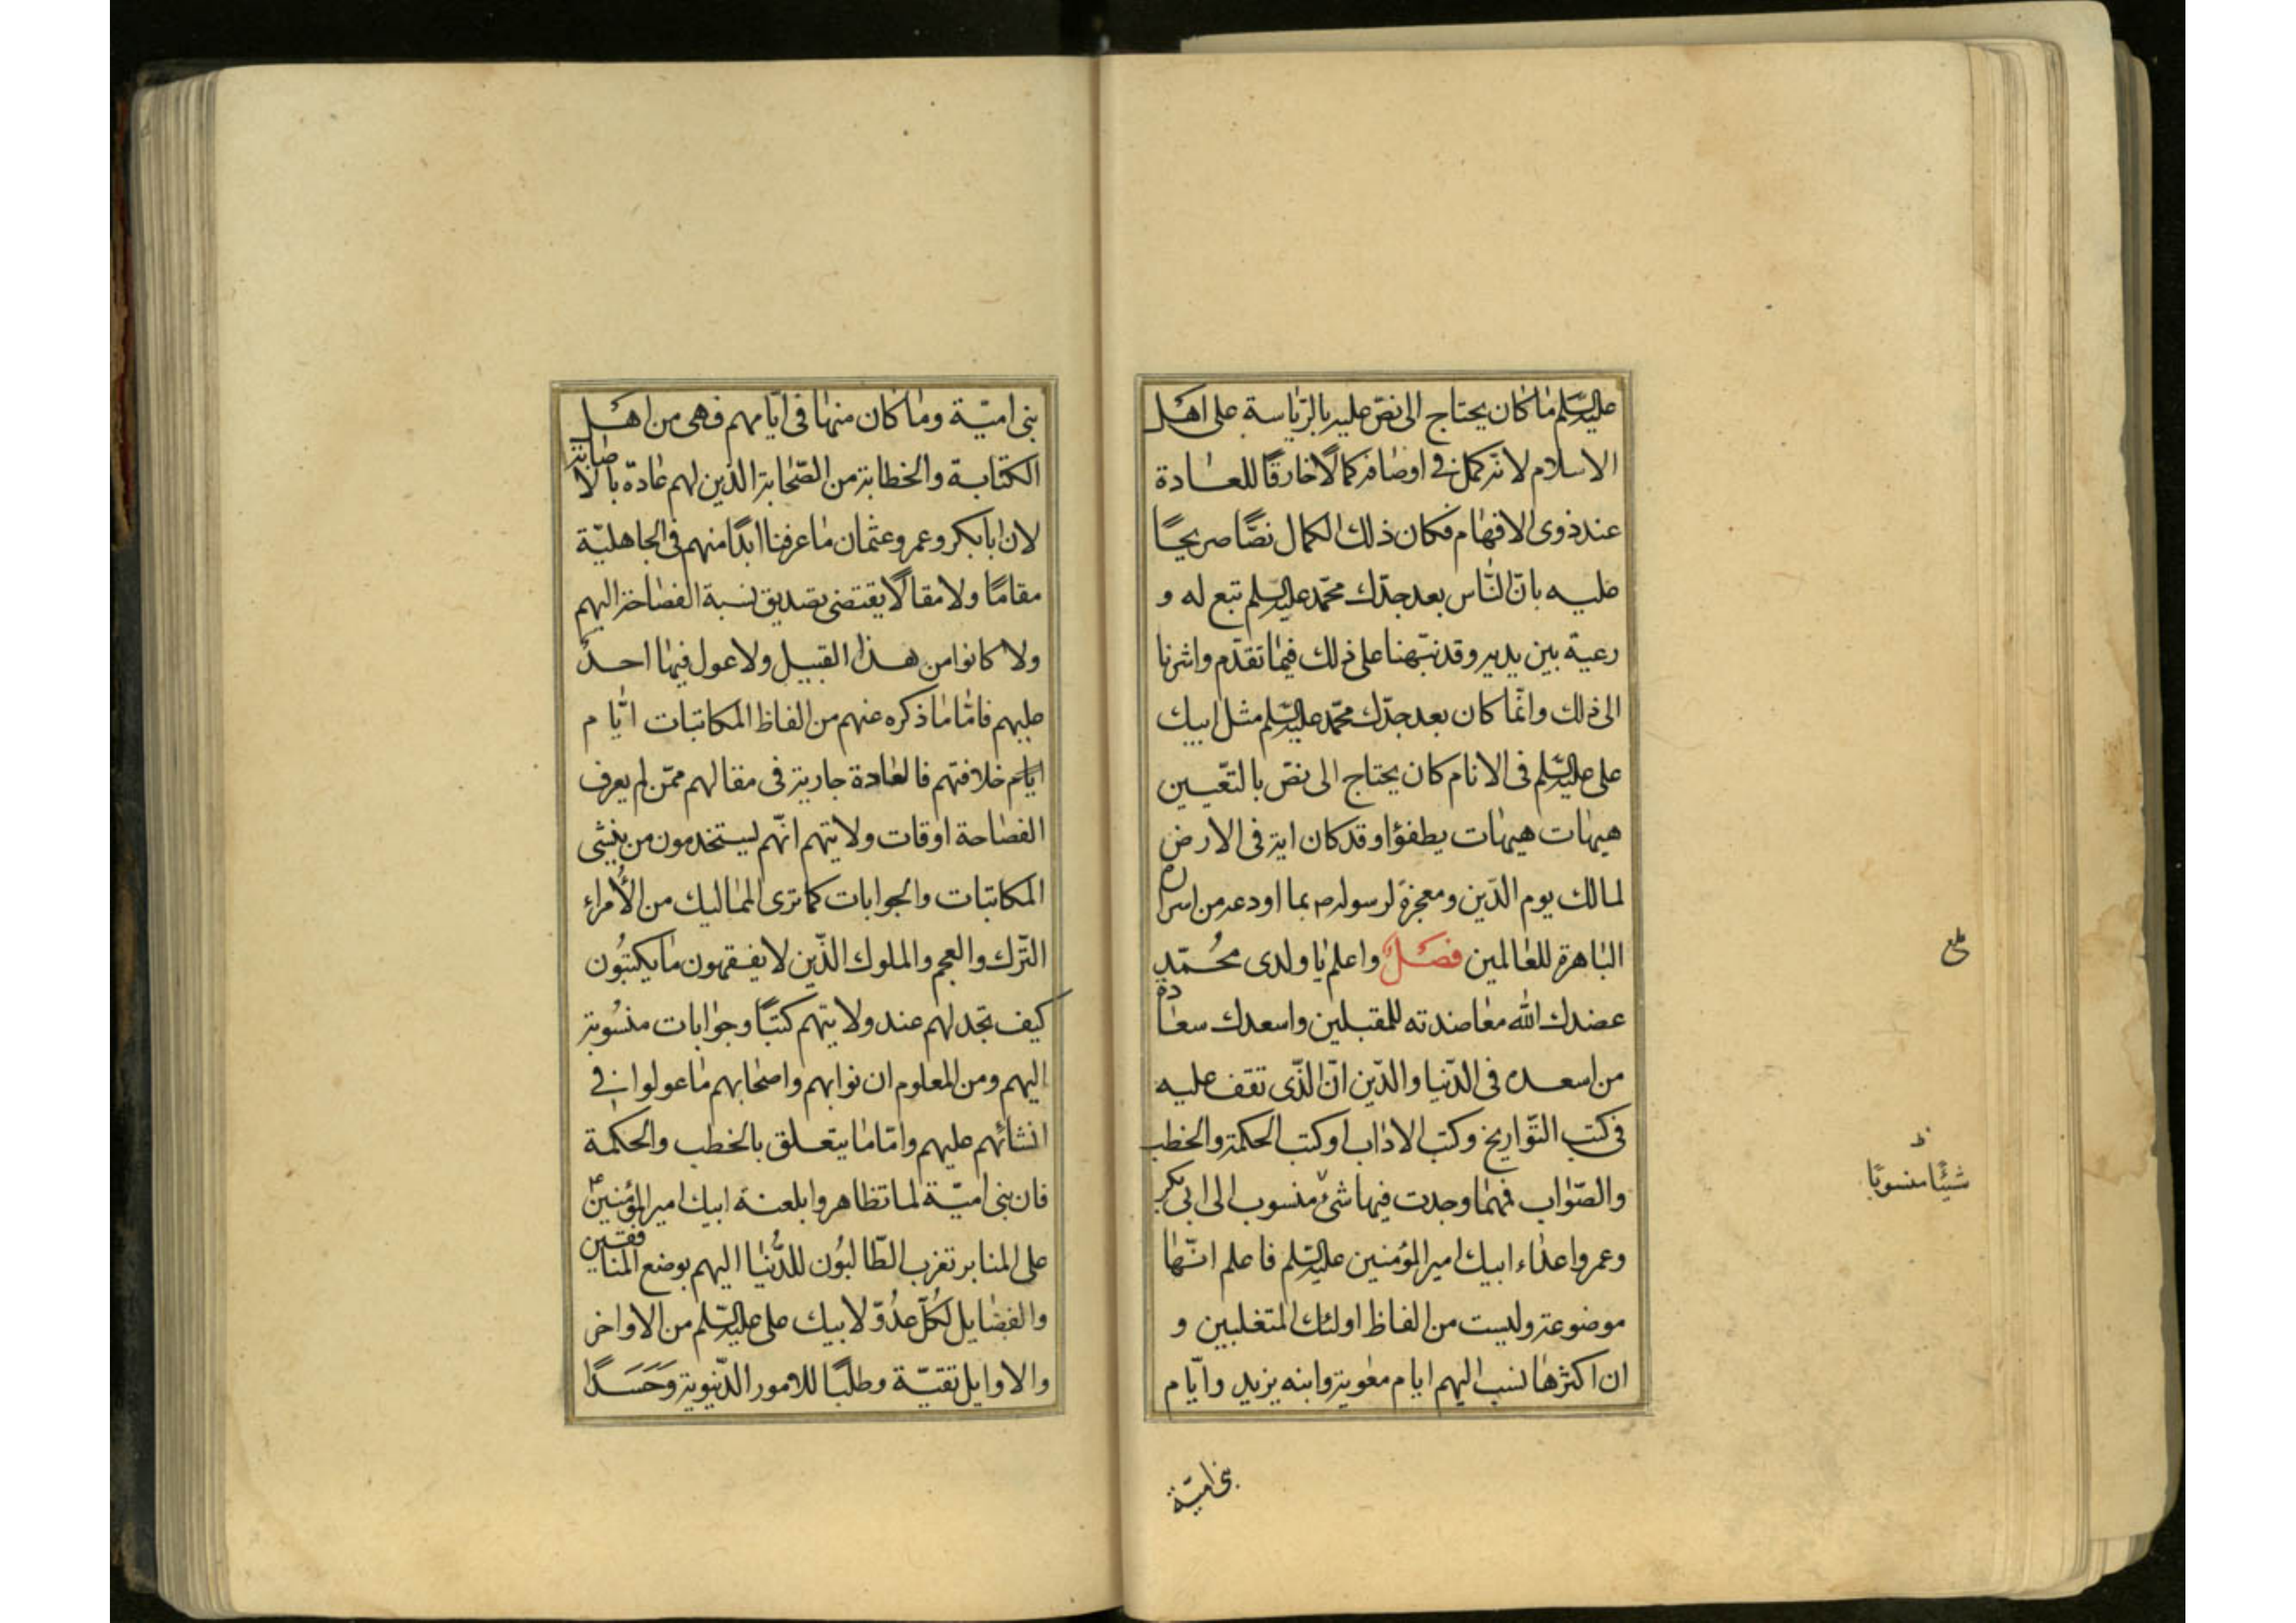 عليه السلم ما كان يحتاج الى نص عليه بالرياسة على اهل
الاسلام لانه كمل فى اوصافه كمالًا خارقًا للعادة
عند ذوى الافهام فكان ذلك الكمال نصًّا صريحًا
عليه بانّ النّاس بعد جدّك محمّد عليه السلم تبع له و
رعية بين يديه وقد نبّهنا على ذلك فيما تقدّم واشرنا
الى ذلك وانّما كان بعد جدّك محمّد عليه السلم مثل ابيك
على عليه السلم فى الانام كان يحتاج الى نصّ بالتّعيين
هيهات هيهات يطفؤا وقد كان اية فى الارض
لمالك يوم الدّين ومعجزة لرسوله ص بما اودعه من اسراره
الباهرة للعالمين فصل واعلم يا ولدى محُمّد
عضدك الله معاضدته للمقبلين واسعدك سعادة
من اسعده فى الدّنيا والدّين انّ الّذى تقف عليه
فى كتب التّواريخ وكتب الاداب او كتب الحكمة والخطب
والصّواب فهما وجدت فيها شئ منسوب الى ابى بكر
وعمر واعداء ابيك امير المؤمنين عليه السلم فاعلم انّها
موضوعة وليست من الفاظ اولئك المتغلبين و
ان اكثرها نسب اليهم ايام معوية وابنه يزيد وايّام
بنى اميّة
بلغ
ظ
شيئًا منسوبًا
بنى اميّة وما كان منها فى ايّامهم فهى من اهل
الكتابة والخطابة من الصّحابة الذين لهم عادة بالاصابة
لان ابا بكر وعمر وعثمان ما عرفنا ابدًا منهم فى الجاهليّة
مقامًا ولا مقالًا يقتضى تصديق نسبة الفصاحة اليهم
ولا كانوا من هذا القبيل ولا عول فيها احد
عليهم فامّا ما ذكره عنهم من الفاظ المكاتبات ايّام
ايام خلافتهم فالعادة جارية فى مقالهم ممّن لم يعرف
الفصاحة اوقات ولايتهم انّهم ليستخدمون من ينشى
المكاتبات والجوابات كما ترى المماليك من الأمراء
التّرك والعجم والملوك الذّين لا يفقهون ما يكتبُون
كيف تجد لهم عند ولايتهم كتبًا وجوابات منسُوبة
اليهم ومن المعلوم ان نوابهم واصحابهم ما عولوا فى
انشائهم عليهم وامّا ما يتعلق بالخطب والحكمة
فان بنى اميّة لما تظاهروا بلعنة ابيك امير المؤمنين ع
على المنابر تغرب الطّالبُون للدُّنيا اليهم بوضع المنافقين
والفضايل لكُلّ عدُوّ لابيك على عليه السلم من الاواخر
والاوايل تقيّة وطلبًا للامور الدّنيوية وَحَسَدًا